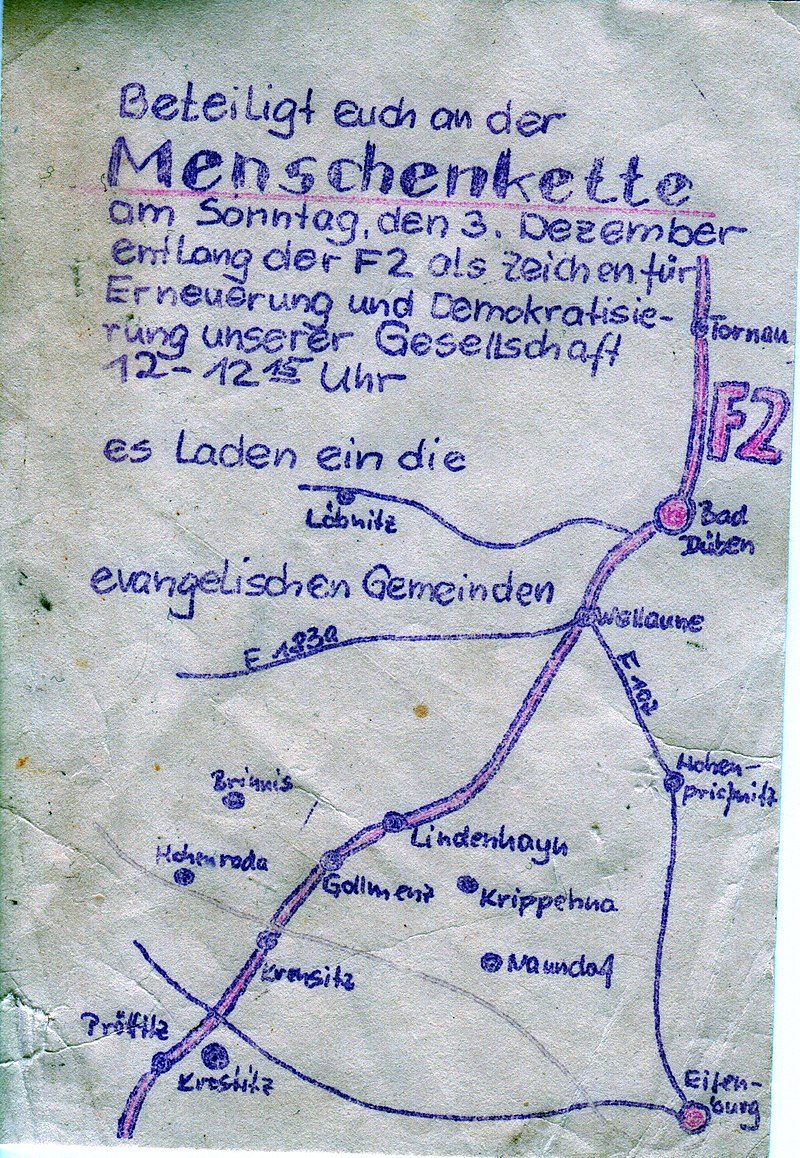 Beteiligt euch an der
Menschenkette
am Sonntag, den 3. Dezember
entlang der F2 als Zeichen für
Erneuerung und Demokratisie-
rung unserer Gesellschaft
12-12 15 Uhr
Tornau
F2
es laden ein die
Löbnitz
Bad
Düben
evangelischen Gemeinden
Wellaune
F 183a
F 107
Hohen-
prießnitz
Brinnis
Lindenhayn
Hohenroda
Gollmenz
Krippehna
Naundof
Krensitz
Kröstitz
Eilen-
burg